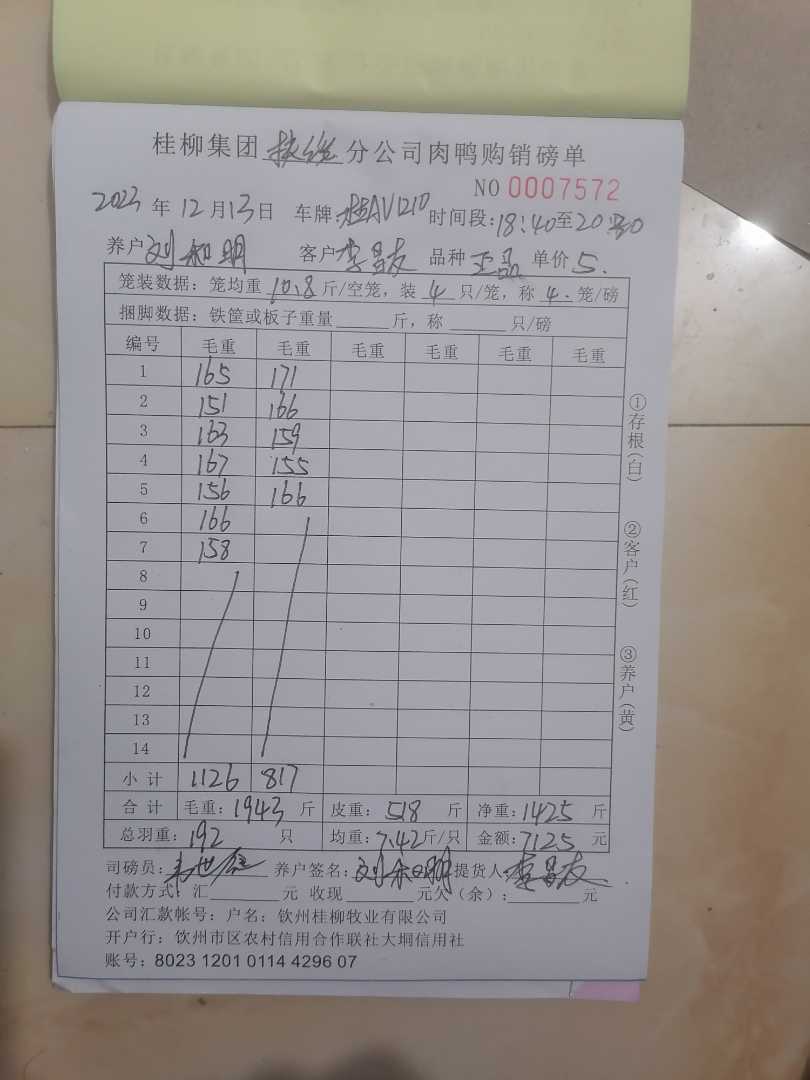 桂柳集团 扶绥 分公司肉鸭购销磅单
NO 0007572
2023 年 12 月 13 日 车牌: 桂AV1210 时间段: 18:40 至 20:30
养户 刘和明 客户 李昌友 品种 正品 单价 5.
笼装数据: 笼均重 10.8 斤/空笼, 装 4 只/笼, 称 4. 笼/磅
捆脚数据: 铁筐或板子重量______斤, 称______只/磅
编号 毛重 毛重 毛重 毛重 毛重 毛重
1 165 171
2 151 166
3 163 159
4 167 155
5 156 166
6 166
7 158
8
9
10
11
12
13
14
小计 1126 817
合计 毛重: 1943 斤 皮重: 518 斤 净重: 1425 斤
总羽重: 192 只 均重: 7.42 斤/只 金额: 7125 元
司磅员: 养户签名: 刘和明 提货人: 李昌友
付款方式: 汇______元 收现______元欠(余): ______元
公司汇款帐号: 户名: 钦州桂柳牧业有限公司
开户行: 钦州市区农村信用合作联社大垌信用社
账号: 8023 1201 0114 4296 07
①存根(白)
②客户(红)
③养户(黄)